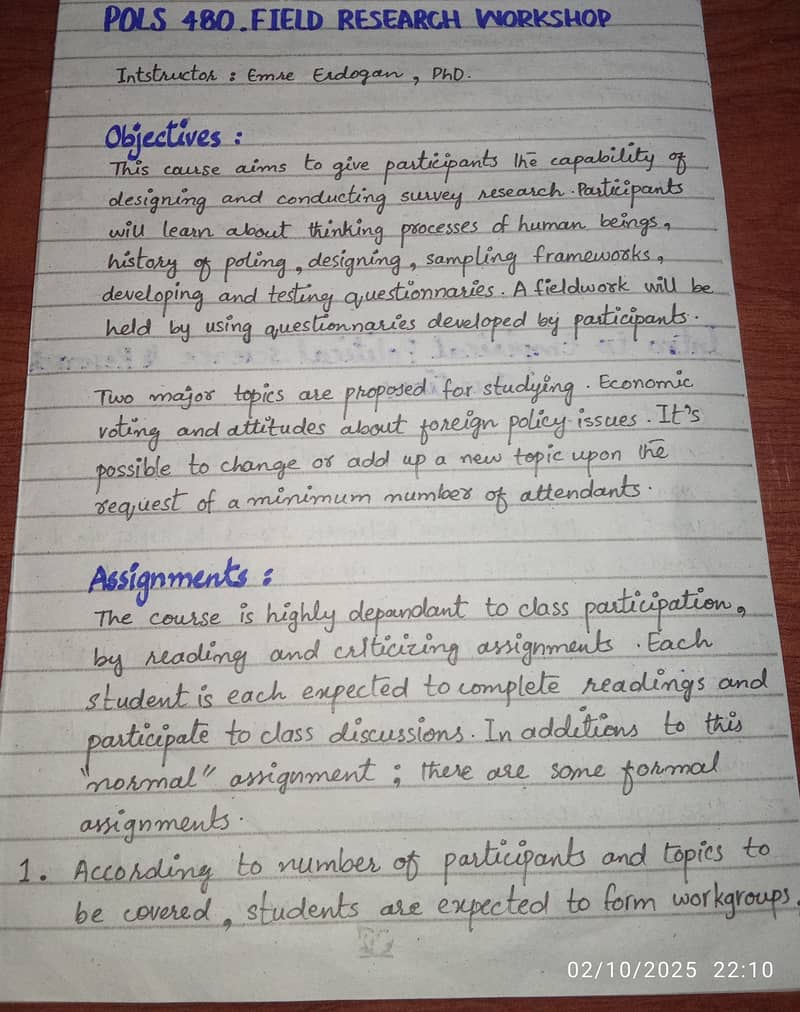 POLS 480. FIELD RESEARCH WORKSHOP
Intstructor : Emre Erdogan, PhD.
Objectives :
This causse aims to give participants the capability of
designing and conducting survey research. Participants
will learn about thinking processes of human beings,
history of poling, designing, sampling frameworks,
developing and testing questionnaries. A fieldwork will be
held by using questionnaries developed by participants.
Two major topics are proposed for studying. Economic
voting and attitudes about foreign policy issues. It's
possible to change or add up a new topic upon the
request of a minimum number of attendants.
Assignments :
The course is highly dependant to class participation,
by reading and criticizing assignments. Each
student is each expected to complete readings and
participate to class discussions. In additions to this
"normal" assignment ; there are some formal
assignments.
1. According to number of participants and topics to
be covered, students are expected to form workgroups.
02/10/2025 22:10